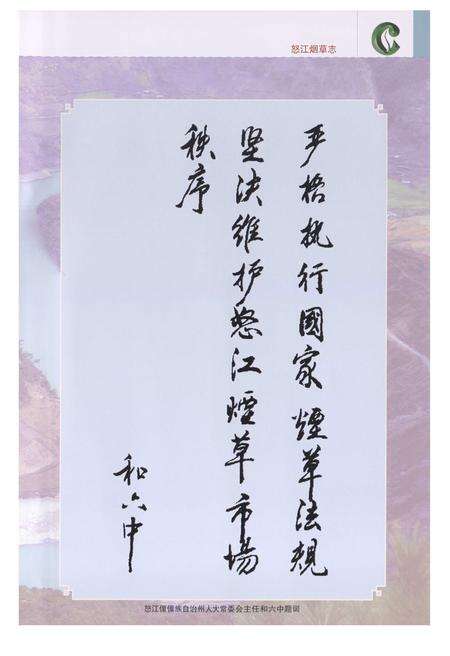 怒江烟草志
严格执行國家煙草法規
坚决维护怒江煙草市场
秩序
和六中
怒江傈僳族自治州人大常委会主任和六中题词